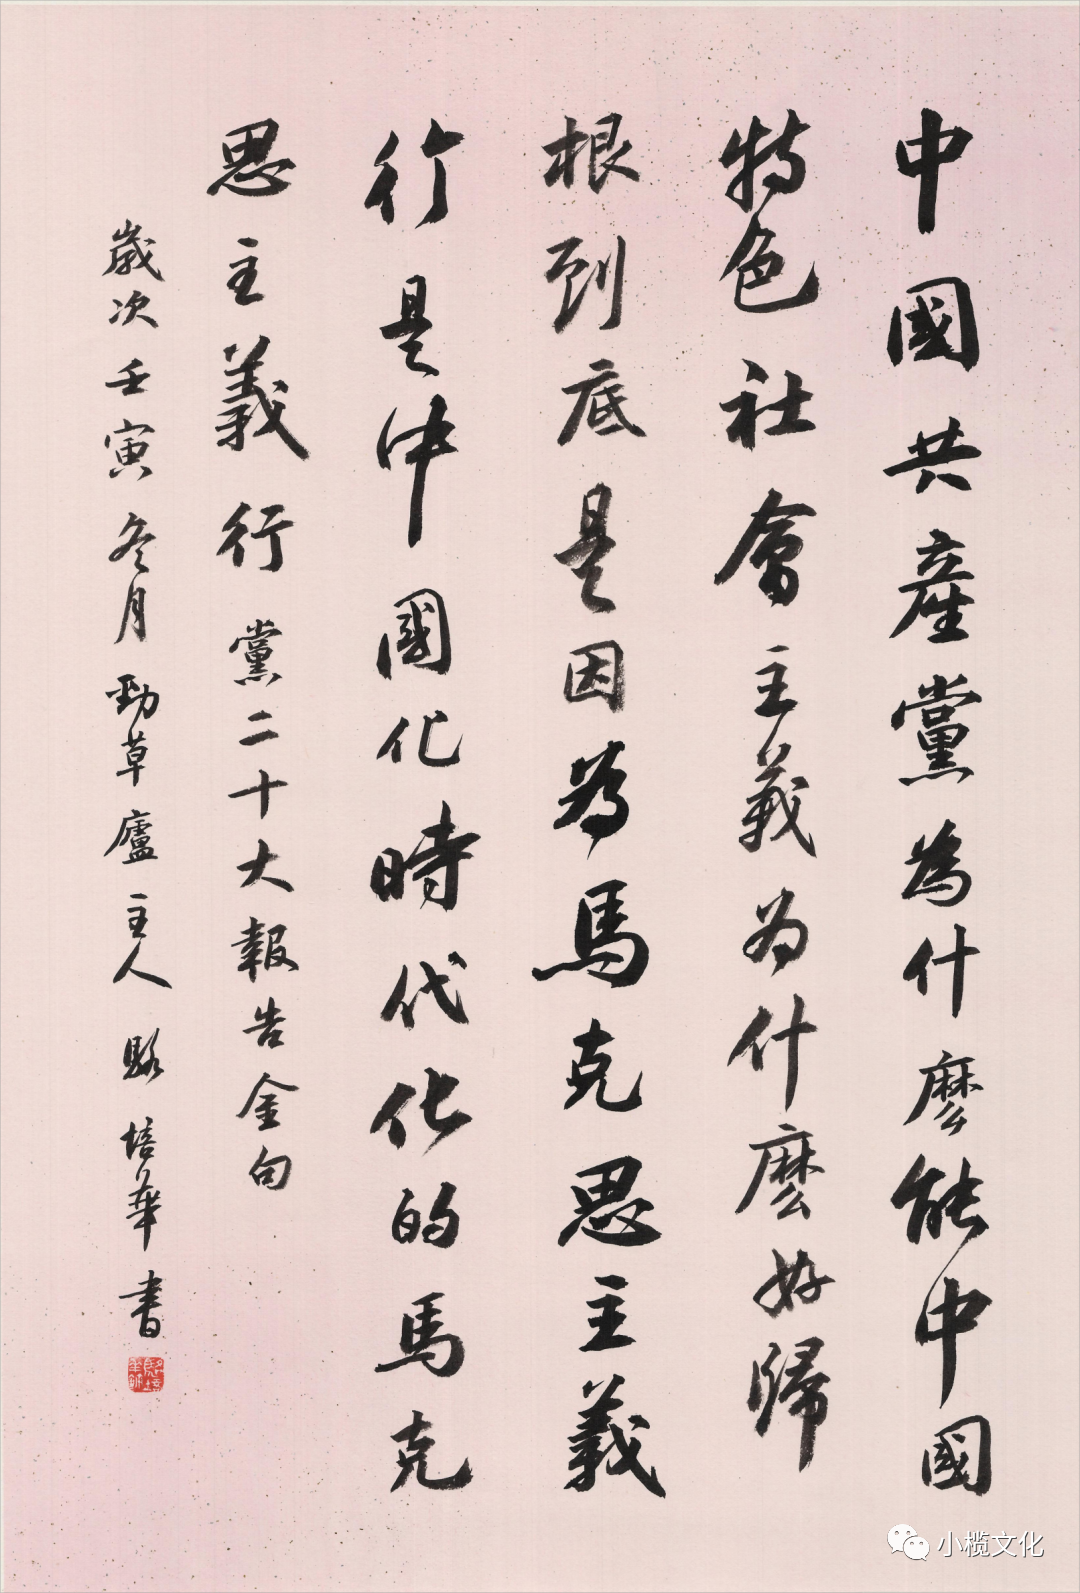 中國共產黨為什麼能中國
特色社會主義为什麼好歸
根到底是因為馬克思主義
行是中國化時代化的馬克
思主義行 黨二十大報告金句
歲次壬寅冬月勁草廬主人 培華書
小榄文化